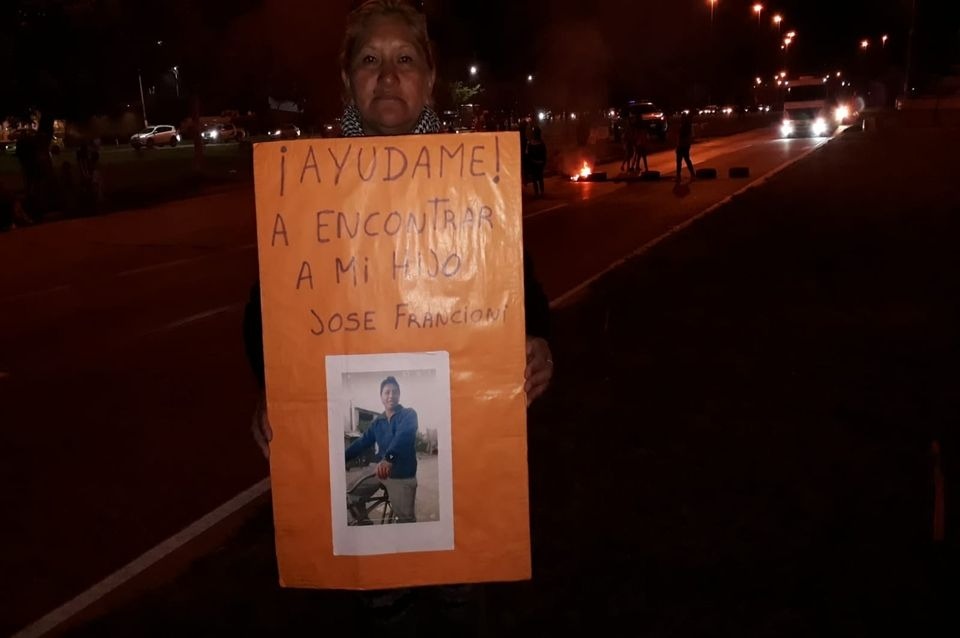 ¡AYUDAME!
A ENCONTRAR
A MI HIJO
JOSE FRANCIONI